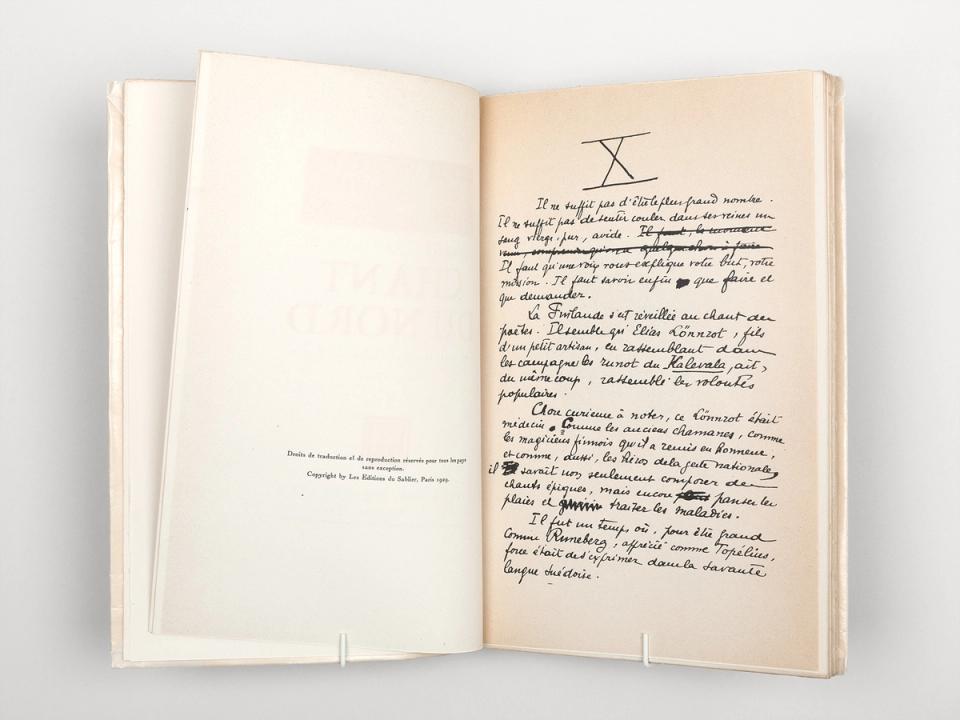 Droits de traduction et de reproduction réservés pour tous les pays
sans exception.
Copyright by Les Editions du Sablier, Paris 1929.
X
Il ne suffit pas d'être le plus grand nombre.
Il ne suffit pas de sentir couler dans ses veines un
sang vierge, pur, avide. Il faut, le moment
venu, comprendre qu'on a quelque chose à faire
Il faut qu'une voix vous explique votre but, votre
mission. Il faut savoir enfin que faire et
que demander.
La Finlande s'est réveillée au chant des
poètes. Il semble qu'Elias Lönnrot, fils
d'un petit artisan, en rassemblant dans
les campagnes les runot du Kalevala, ait,
du même coup, rassemblé les volontés
populaires.
Chose curieuse à noter, ce Lönnrot était
médecin. Comme les anciens chamanes, comme
les magiciens finnois qu'il a remis en honneur,
et comme, aussi, les héros de la geste nationale,
il savait non seulement composer des
chants épiques, mais encore panser les
plaies et traiter les maladies.
Il fut un temps où, pour être grand
comme Runeberg, apprécié comme Topélius,
force était de s'exprimer dans la savante
langue suédoise.